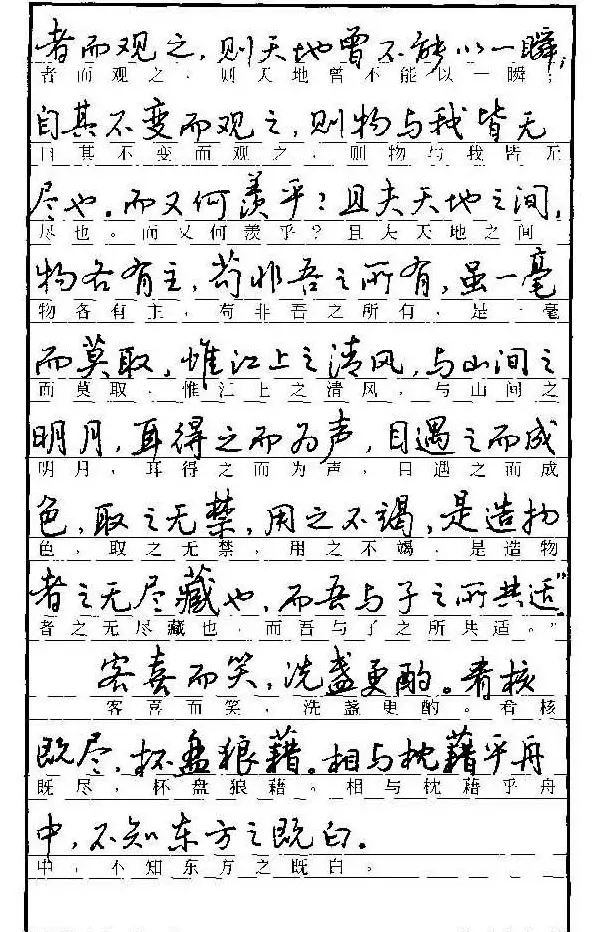 者而观之，则天地曾不能以一瞬；
者而观之，则天地曾不能以一瞬；
自其不变而观之，则物与我皆无
自其不变而观之，则物与我皆无
尽也。而又何羡乎？且夫天地之间，
尽也。而又何羡乎？且夫天地之间
物各有主，苟非吾之所有，虽一毫
物各有主，苟非吾之所有，是一毫
而莫取，惟江上之清风，与山间之
而莫取，惟江上之清风，与山间之
明月，耳得之而为声，目遇之而成
明月，耳得之而为声，目遇之而成
色，取之无禁，用之不竭，是造物
色，取之无禁，用之不竭，是造物
者之无尽藏也，而吾与子之所共适”
者之无尽藏也，而吾与子之所共适。”
客喜而笑，洗盏更酌。肴核
客喜而笑，洗盏更酌。肴核
既尽，杯盘狼藉。相与枕藉乎舟
既尽，杯盘狼藉。相与枕藉乎舟
中，不知东方之既白。
中，不知东方之既白。